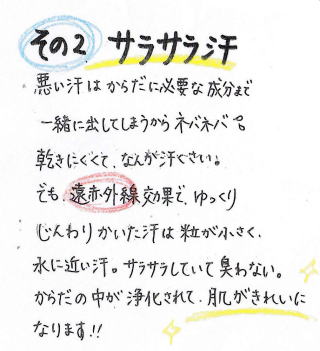 その2 サラサラ汗
悪い汗はからだに必要な成分まで
一緒に出してしまうからネバネバ
乾きにくくて、なんか汗くさい。
でも、遠赤外線効果で、ゆっくり
じんわりかいた汗は粒が小さく、
水に近い汗。サラサラしていて臭わない。
からだの中が浄化されて、肌がきれいに
なります!!